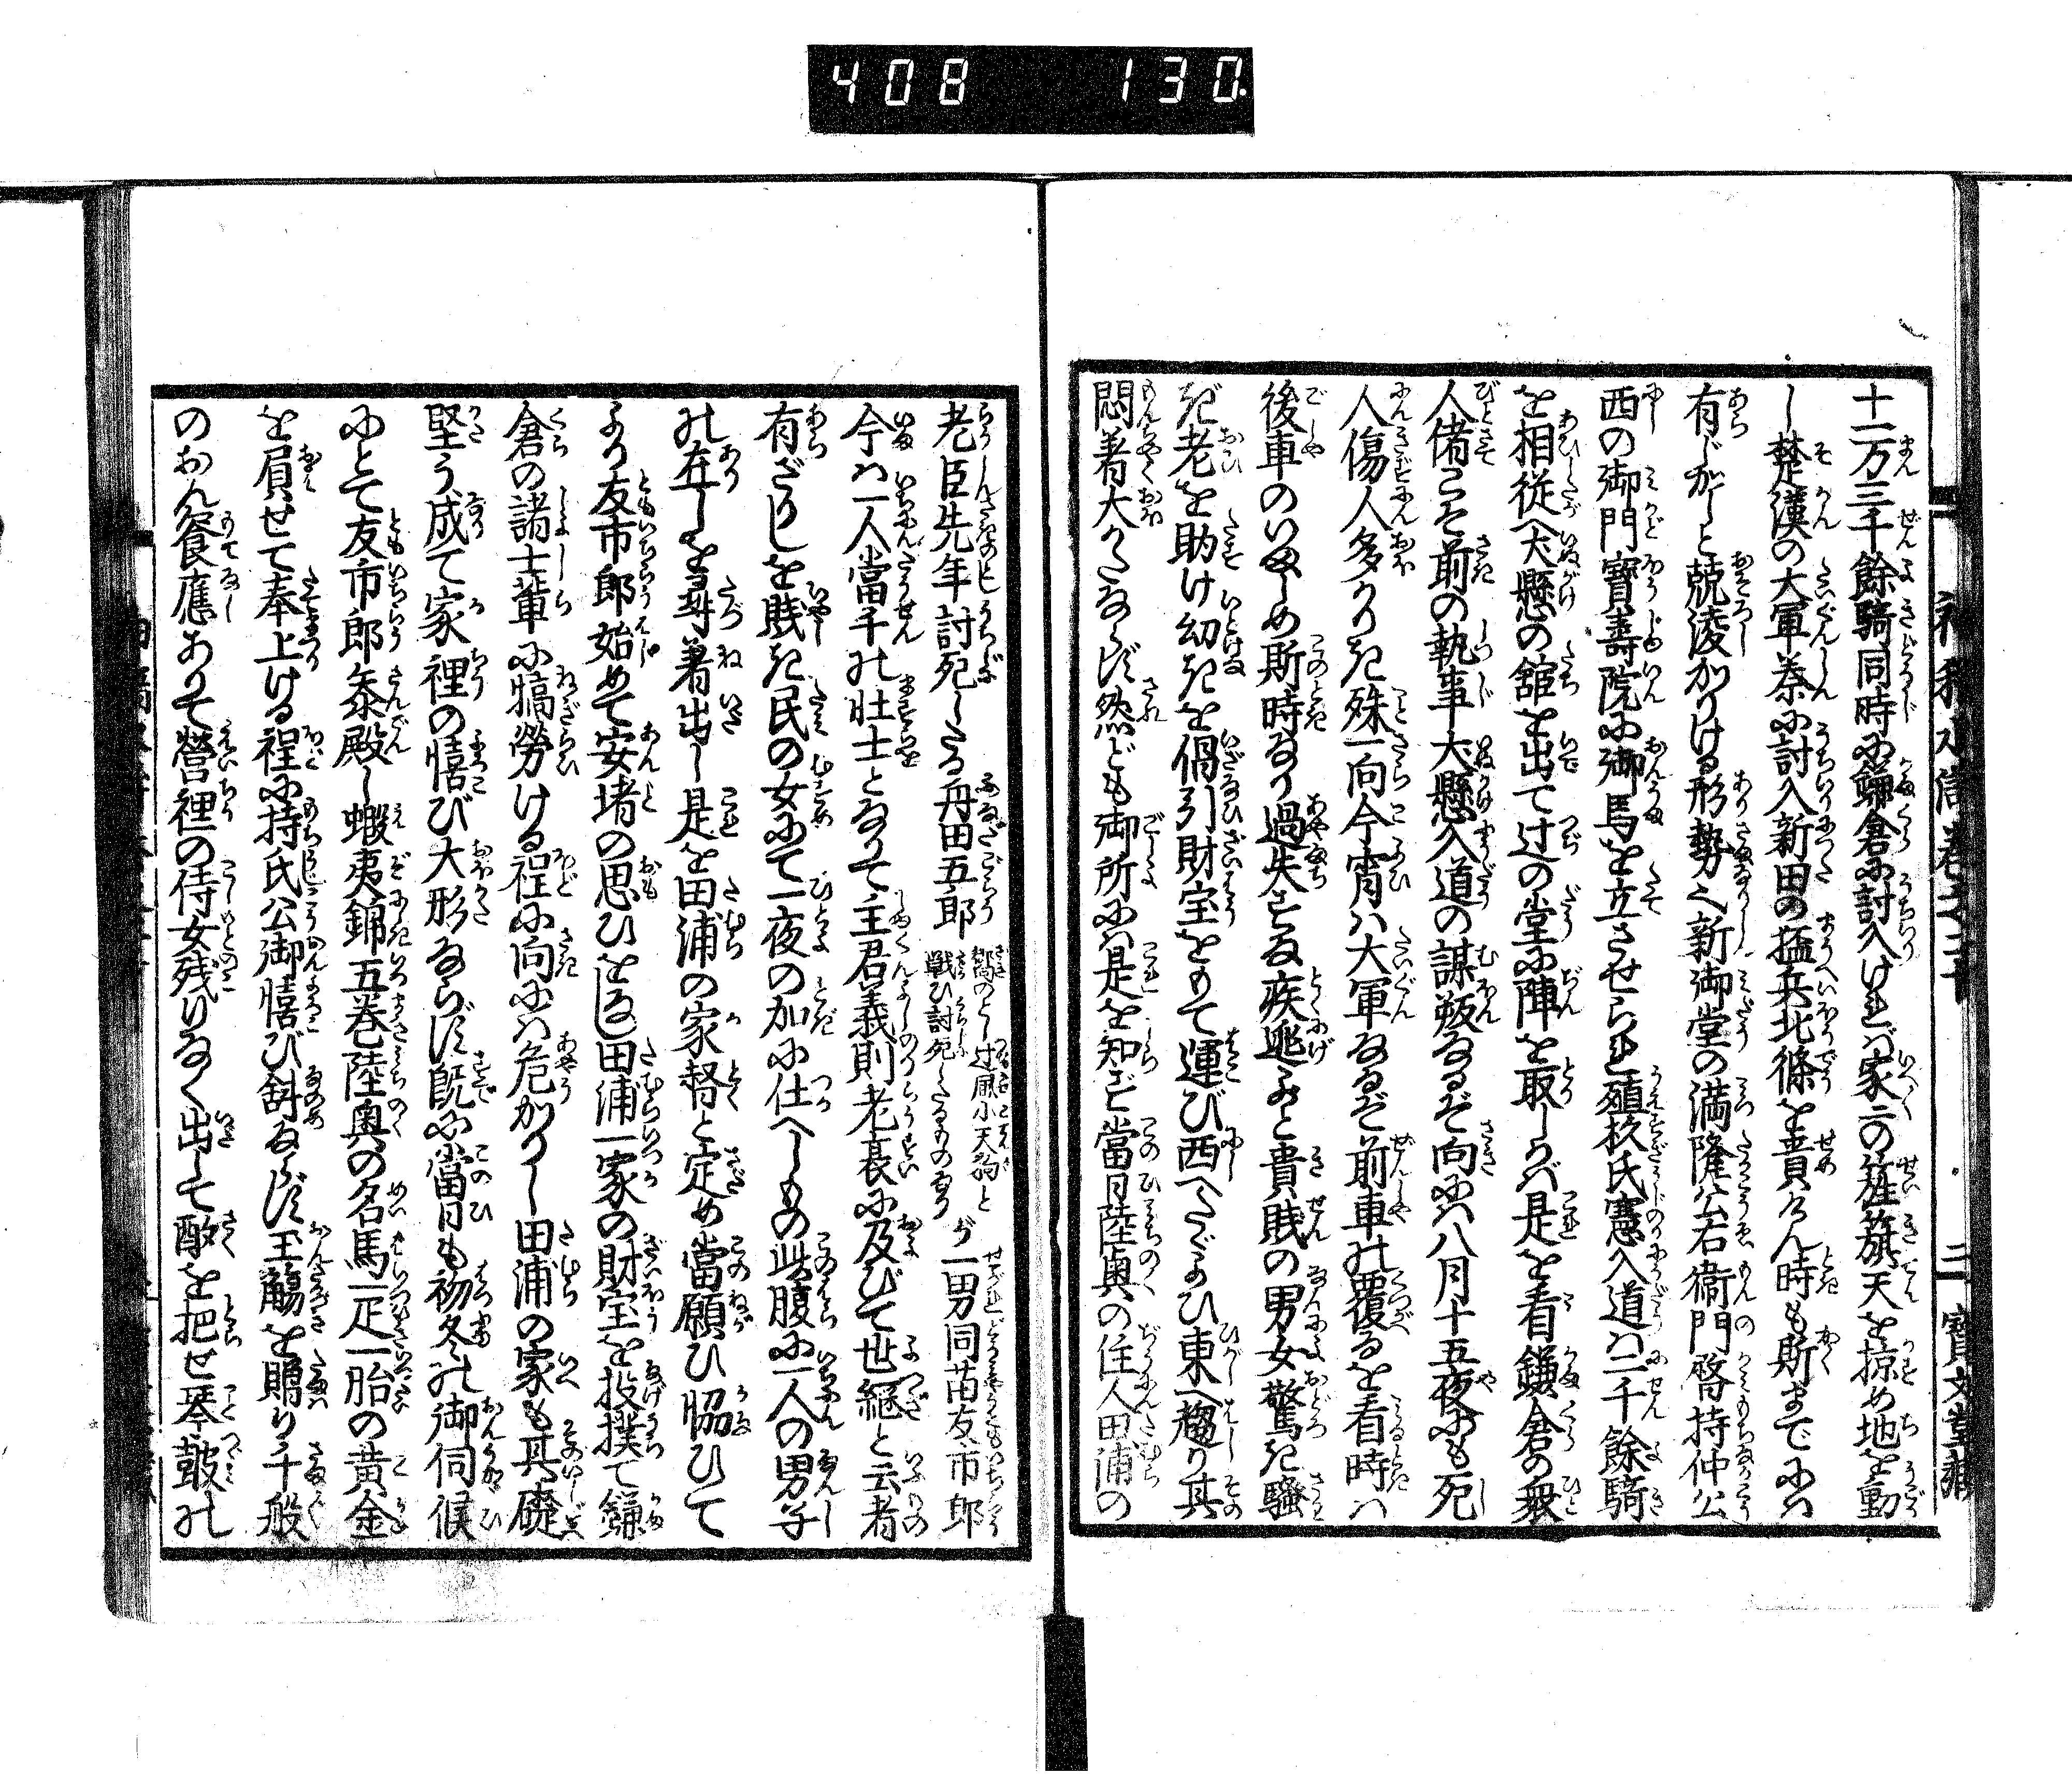 408 130
十二万三千餘騎同時に鎌倉に討入ければ家々の旌旗天を掠め地を動
し楚漢の大軍秦に討入新田の猛兵北條を責けん時も斯までには
有じがしと競凌かりける形勢也新御堂の満隆公右衛門督持仲公
西の御門寳壽院に御馬を立させられ殖杉氏憲入道は二千餘騎
を相従へ犬懸の舘を出て辻の堂に陣を取しかば是を看鎌倉の衆
人偖こそ前の執事犬懸入道の謀叛なるぞ向には八月十五夜にも死
人傷人多かりき殊一向今宵は大軍なるぞ前車の覆るを看時は
後車のいましめ斯時なり過失すな疾逃よと貴賎の男女驚き騒
ぎ老を助け幼きを倡引財宝をもて運び西へたゞよひ東へ趨り其
悶着大かたならず然ども御所には是を知ず當日陸奥の住人田浦の
老臣先年討死したる舟田五郎
嚮のとし辻風小天狗と
戦ひ討死したるものなり
が一男同苗友市郎
今は一人當千の壮士となりて主君義則老衰に及びて世継と云者
有ざりしを賎き民の女にて一夜の加に仕へしもの此腹に一人の男子
の在しを尋ね着出し是を田浦の家督と定め當願ひ協ひて
より友市郎始めて安堵の思ひをなし田浦一家の財宝を投撲て鎌
倉の諸士輩に犒勞ける程に向には危かりし田浦の家も其礎
堅う成て家裡の憘び大形ならず既に當日も初冬の御伺候
にとて友市郎参殿し蝦夷錦五巻陸奥の名馬一疋一胎の黄金
を屓せて奉上ける程に持氏公御憘び斜ならず玉觴を賜り千般
のおん餐應ありて營裡の侍女残りなく出して酌を把せ琴鼓の